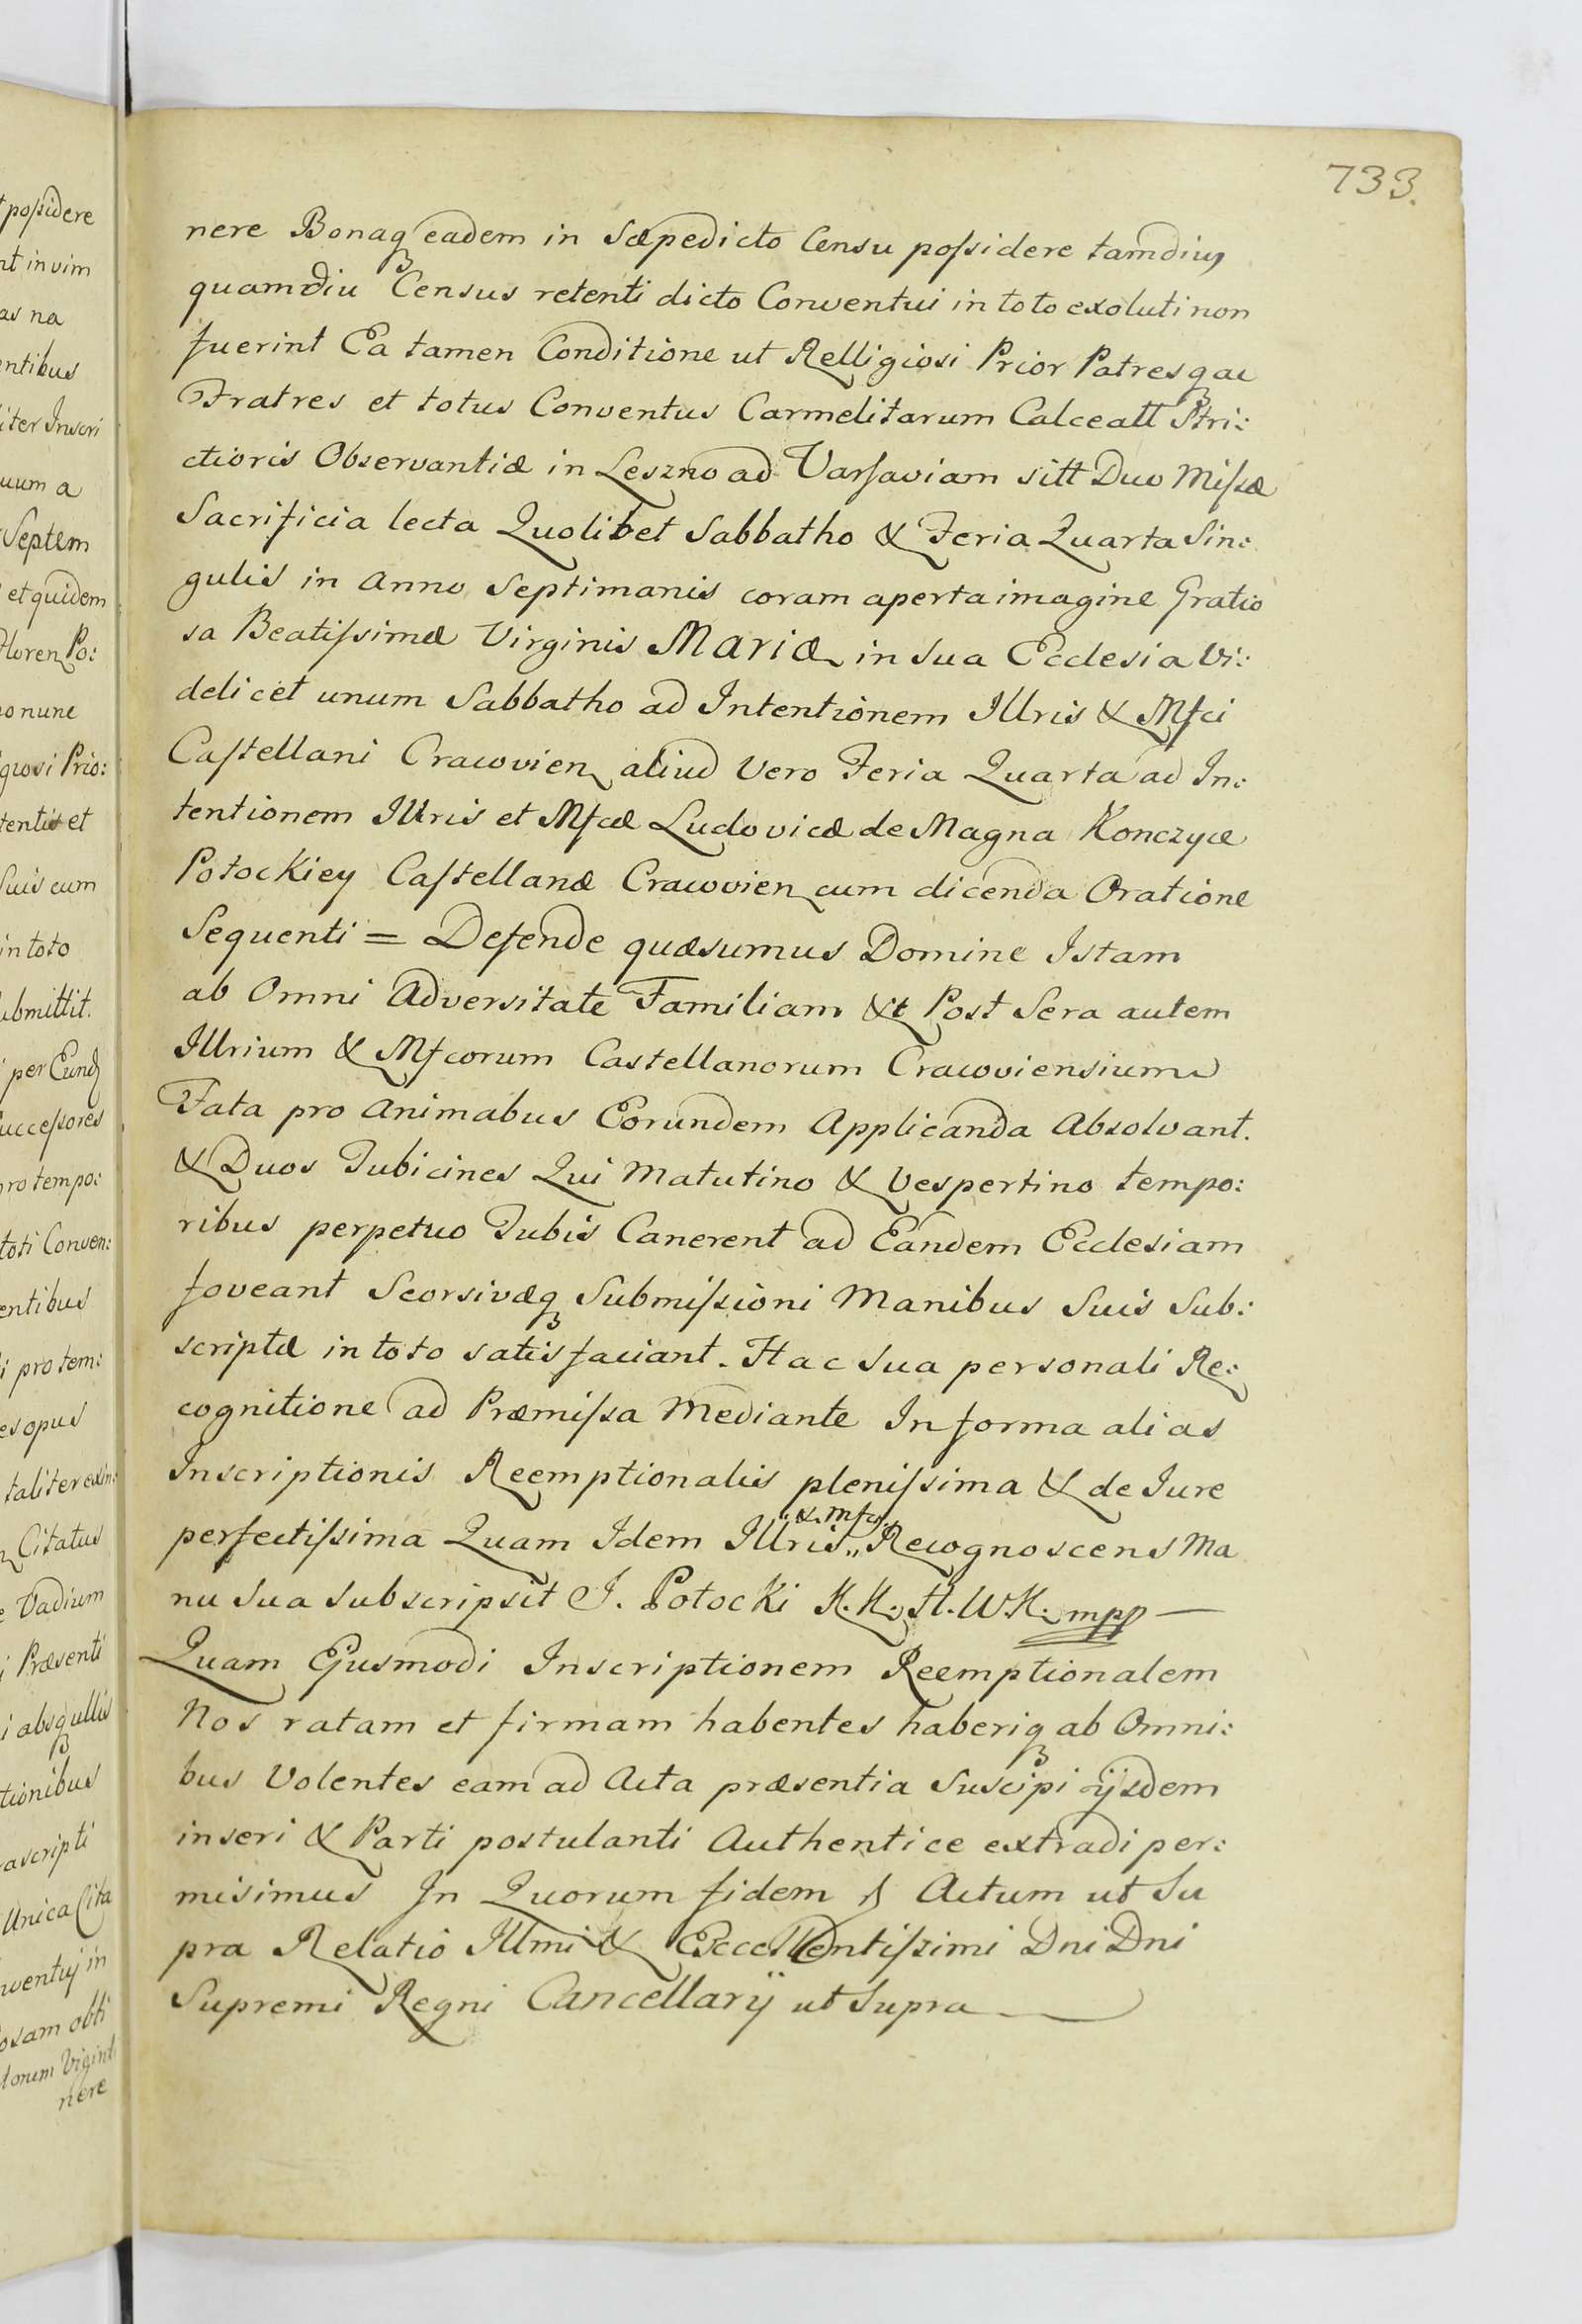 733.
nere Bonaq eadem in Sæpedicto Censu poſsidere tamdiu
quamdiu Census retenti dicto Conventui in toto exoluti non
fuerint Ea tamen Conditione ut Relligiosi Prior Patresq ac
Fratres et totus Conventus Carmelitarum Calceatt Stri:
ctioris Observantiæ in Leszno ad Varſaviam sitt Duo Miſsæ
Sacrificia lecta Quolibet Sabbatho & Feria Quarta Sin:
gulis in Anno Septimanis coram aperta imagine Gratio
sa Beatiſsimæ Virginis Mariæ in Sua Ecclesia Vi:
delicet unum Sabbatho ad Intentionem Illris & Mfci
Caſtellani Cracovien aliud Vero Feria Quarta ad In:
tentionem Illris et Mfcæ Ludovicæ de Magna Konczyce
Potockiey Caſtellanæ Cracovien cum dicenda Oratione
Sequenti = Defende quæsumus Domine Istam
ab Omni Adversitate Familiam &t Post Sera autem
Illrium & Mfcorum Castellanorum Cracoviensium
Fata pro Animabus Eorundem Applicanda Absolvant.
& Duos Tubicines Qui Matutino & Vespertino tempo:
ribus perpetuo Tubis Canerent ad Eandem Ecclesiam
foveant Seorsivæq Submiſsioni Manibus Suis Sub:
scriptæ in toto satisfaciant. Hac Sua personali Re:
cognitione ad Præmiſsa Mediante In forma alias
Inscriptionis Reemptionalis pleniſsima & de Iure
& Mfcs
perfectiſsima Quam Idem Illris „ Recognoscens Ma
nu Sua Subscripsit J. Potocki K. K. H. W. K. mpp —
Quam Ejusmodi Inscriptionem Reemptionalem
Nos ratam et firmam habentes haberiq ab Omni:
bus Volentes eam ad Acta præsentia Suscipi ijsdem
inseri & Parti postulanti Authentice extradi per:
misimus In Quorum fidem Actum ut Su
pra Relatio Illmi & Excellentiſsimi Dni Dni
Supremi Regni Cancellarij ut Supra